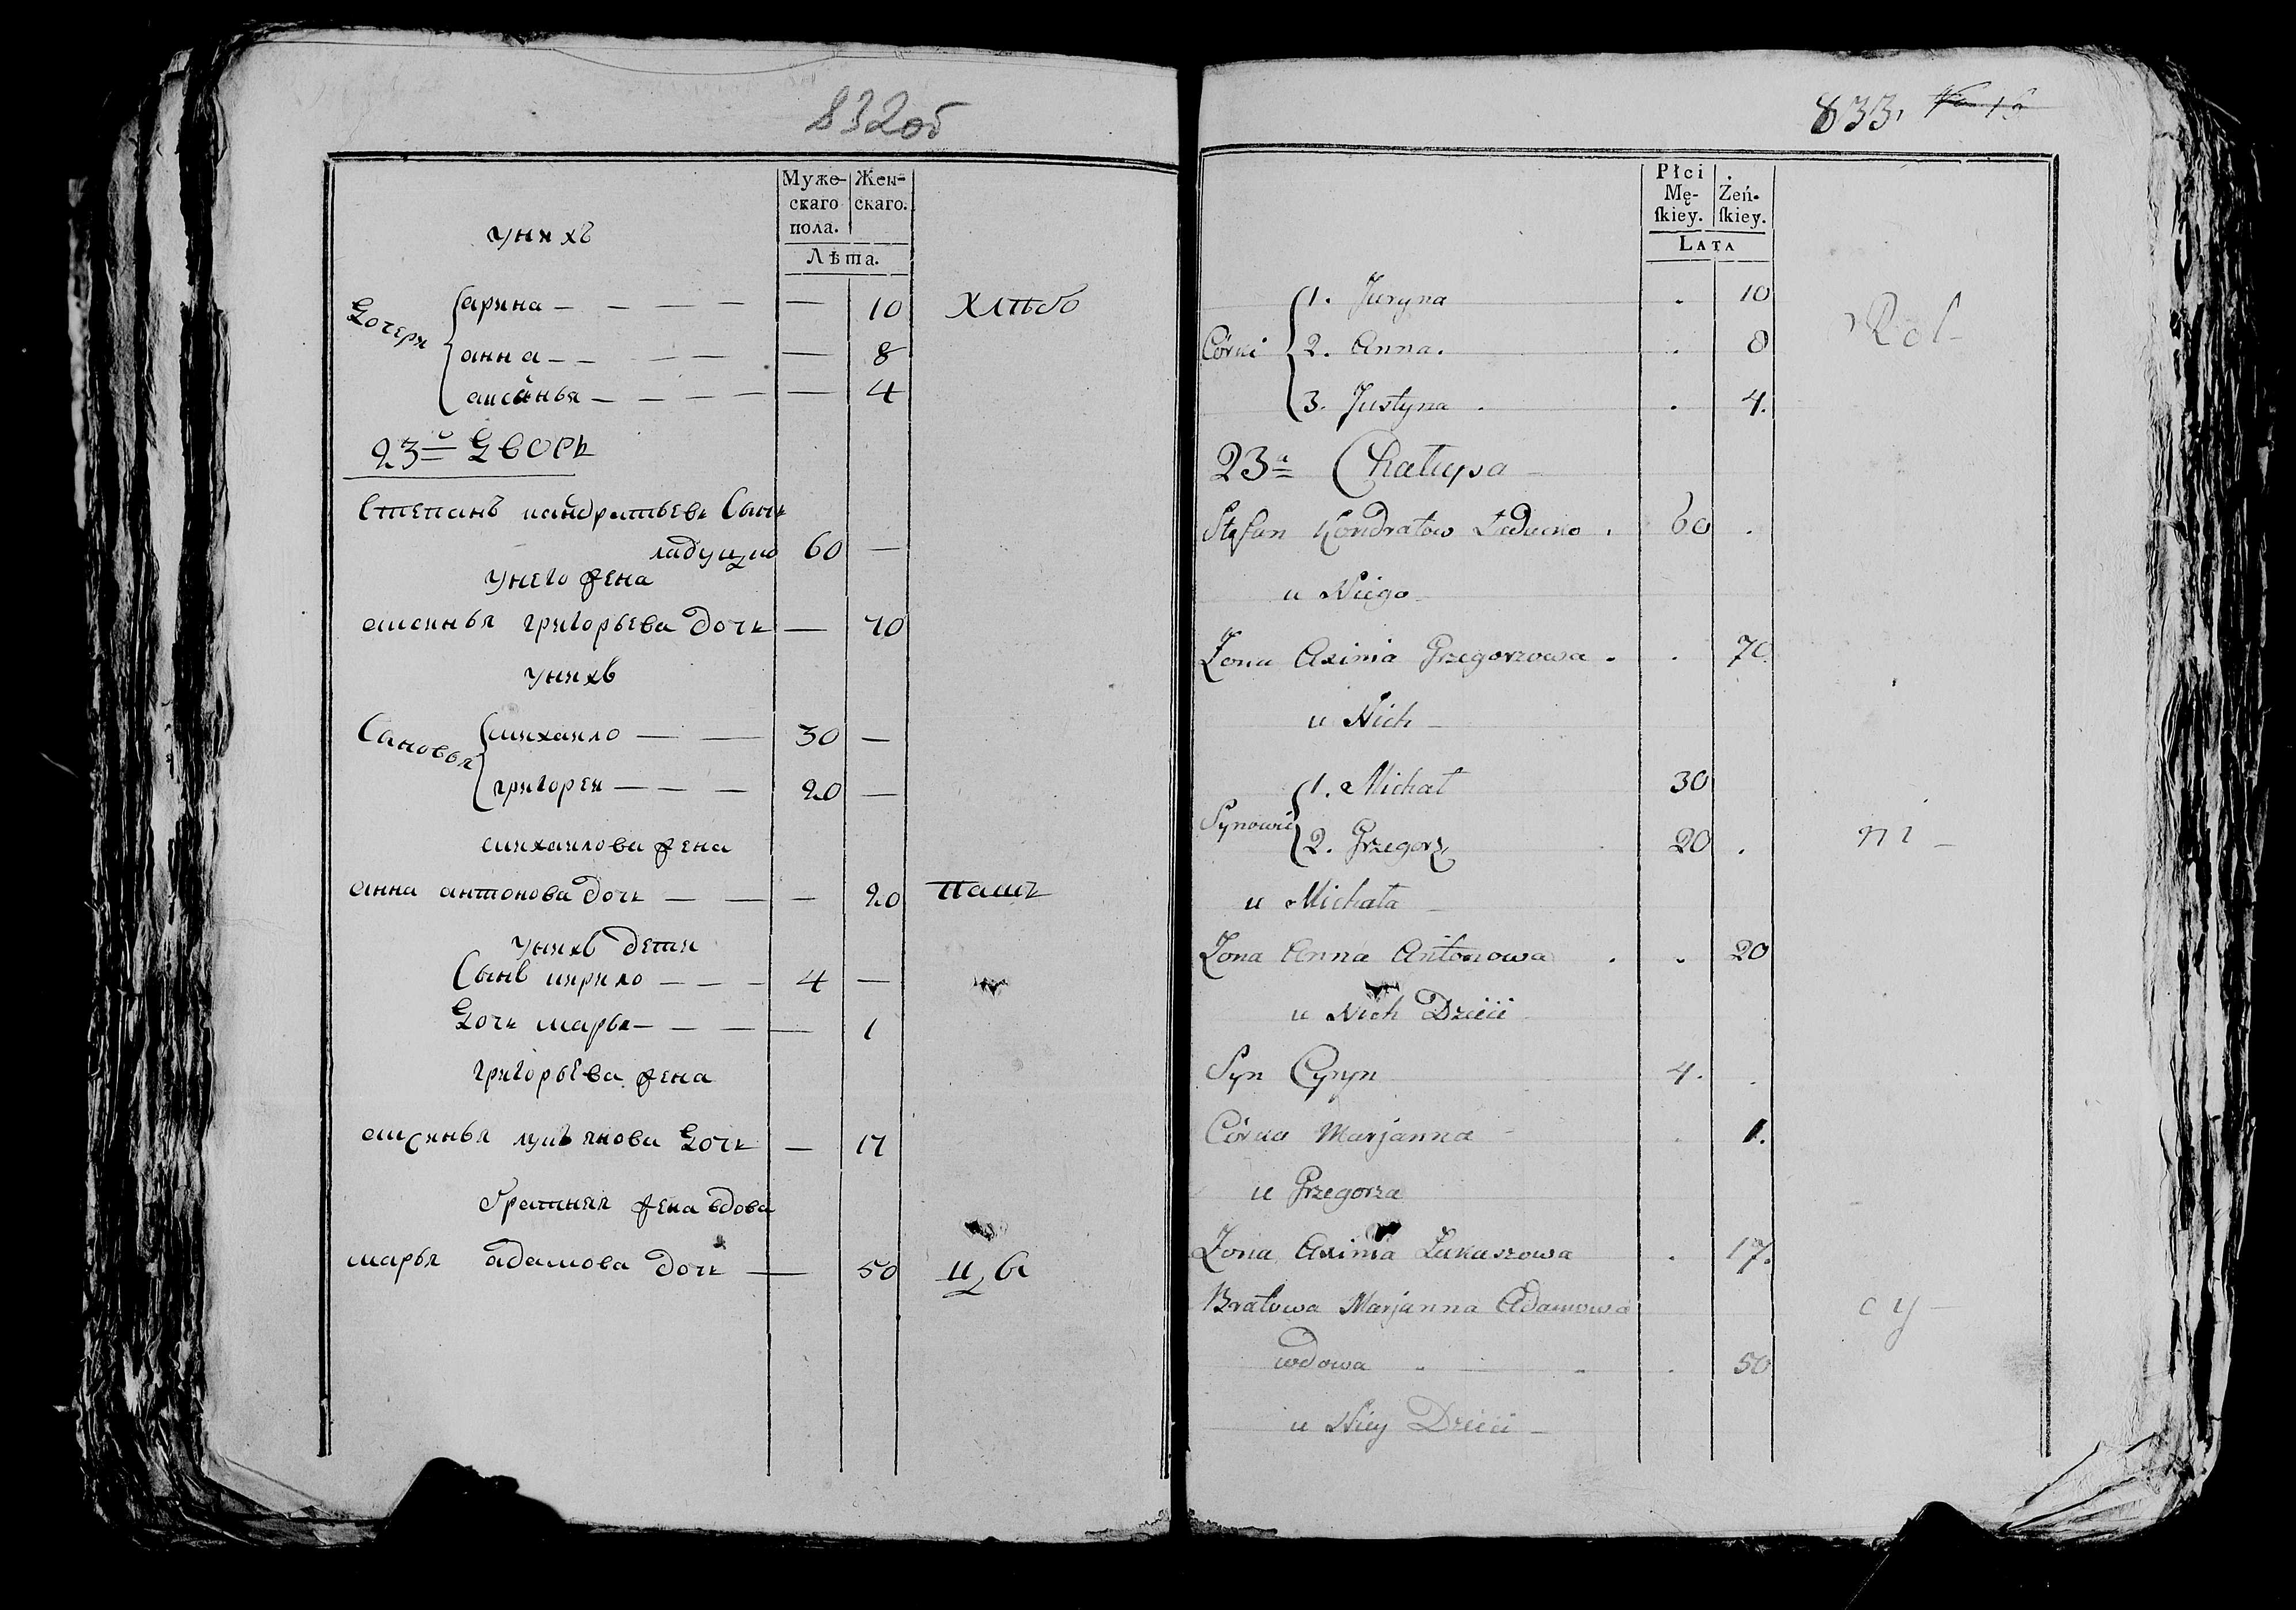 832об
Мужескаго пола.
Женскаго.
Лѣта.
у них
Дочери
арина — — — — — 10 хлѣбо
анна — — — — — 8
аксинья — — — — — 4
23й Дворъ
Степанъ кондратьевъ Сынъ
ладуцко 60 —
у него жена
аксинья григорьева дочь — 70
у нихъ
Сыновья
михаило — — 30 —
григореи — — — 20 —
михаилова жена
анна антонова дочь — — — 20 паш
у нихъ дети
Сынъ кирило — — — 4 —
Дочь марья — — — — 1
григорьева жена
аксинья лукъянова Дочь — 17
братняя жена вдова
марья адамова дочь — 50 цы
833.
Płci Mę-
skiey.
Żeń-
skiey.
Lata
Córki
1. Juryna . 10 Rol-
2. Anna. . 8
3. Justyna . . 4.
23a Chałupa
Stefan Kondratow Laducko . 60 .
u Niego
Żona Axinia Grzegorzowa . . 70.
u Nich
Synowie
1. Michał 30
2. Grzegorz 20 . ni-
u Michała
Żona Anna Antonowa . . 20
u Nich Dzieci
Syn Cyryn 4. .
Córka Marjanna . 1.
u Grzegorza
Żona Axinia Łukaszowa . 17.
Bratowa Marjanna Adamowa cy-
wdowa . . . 50
u Niey Dzieci